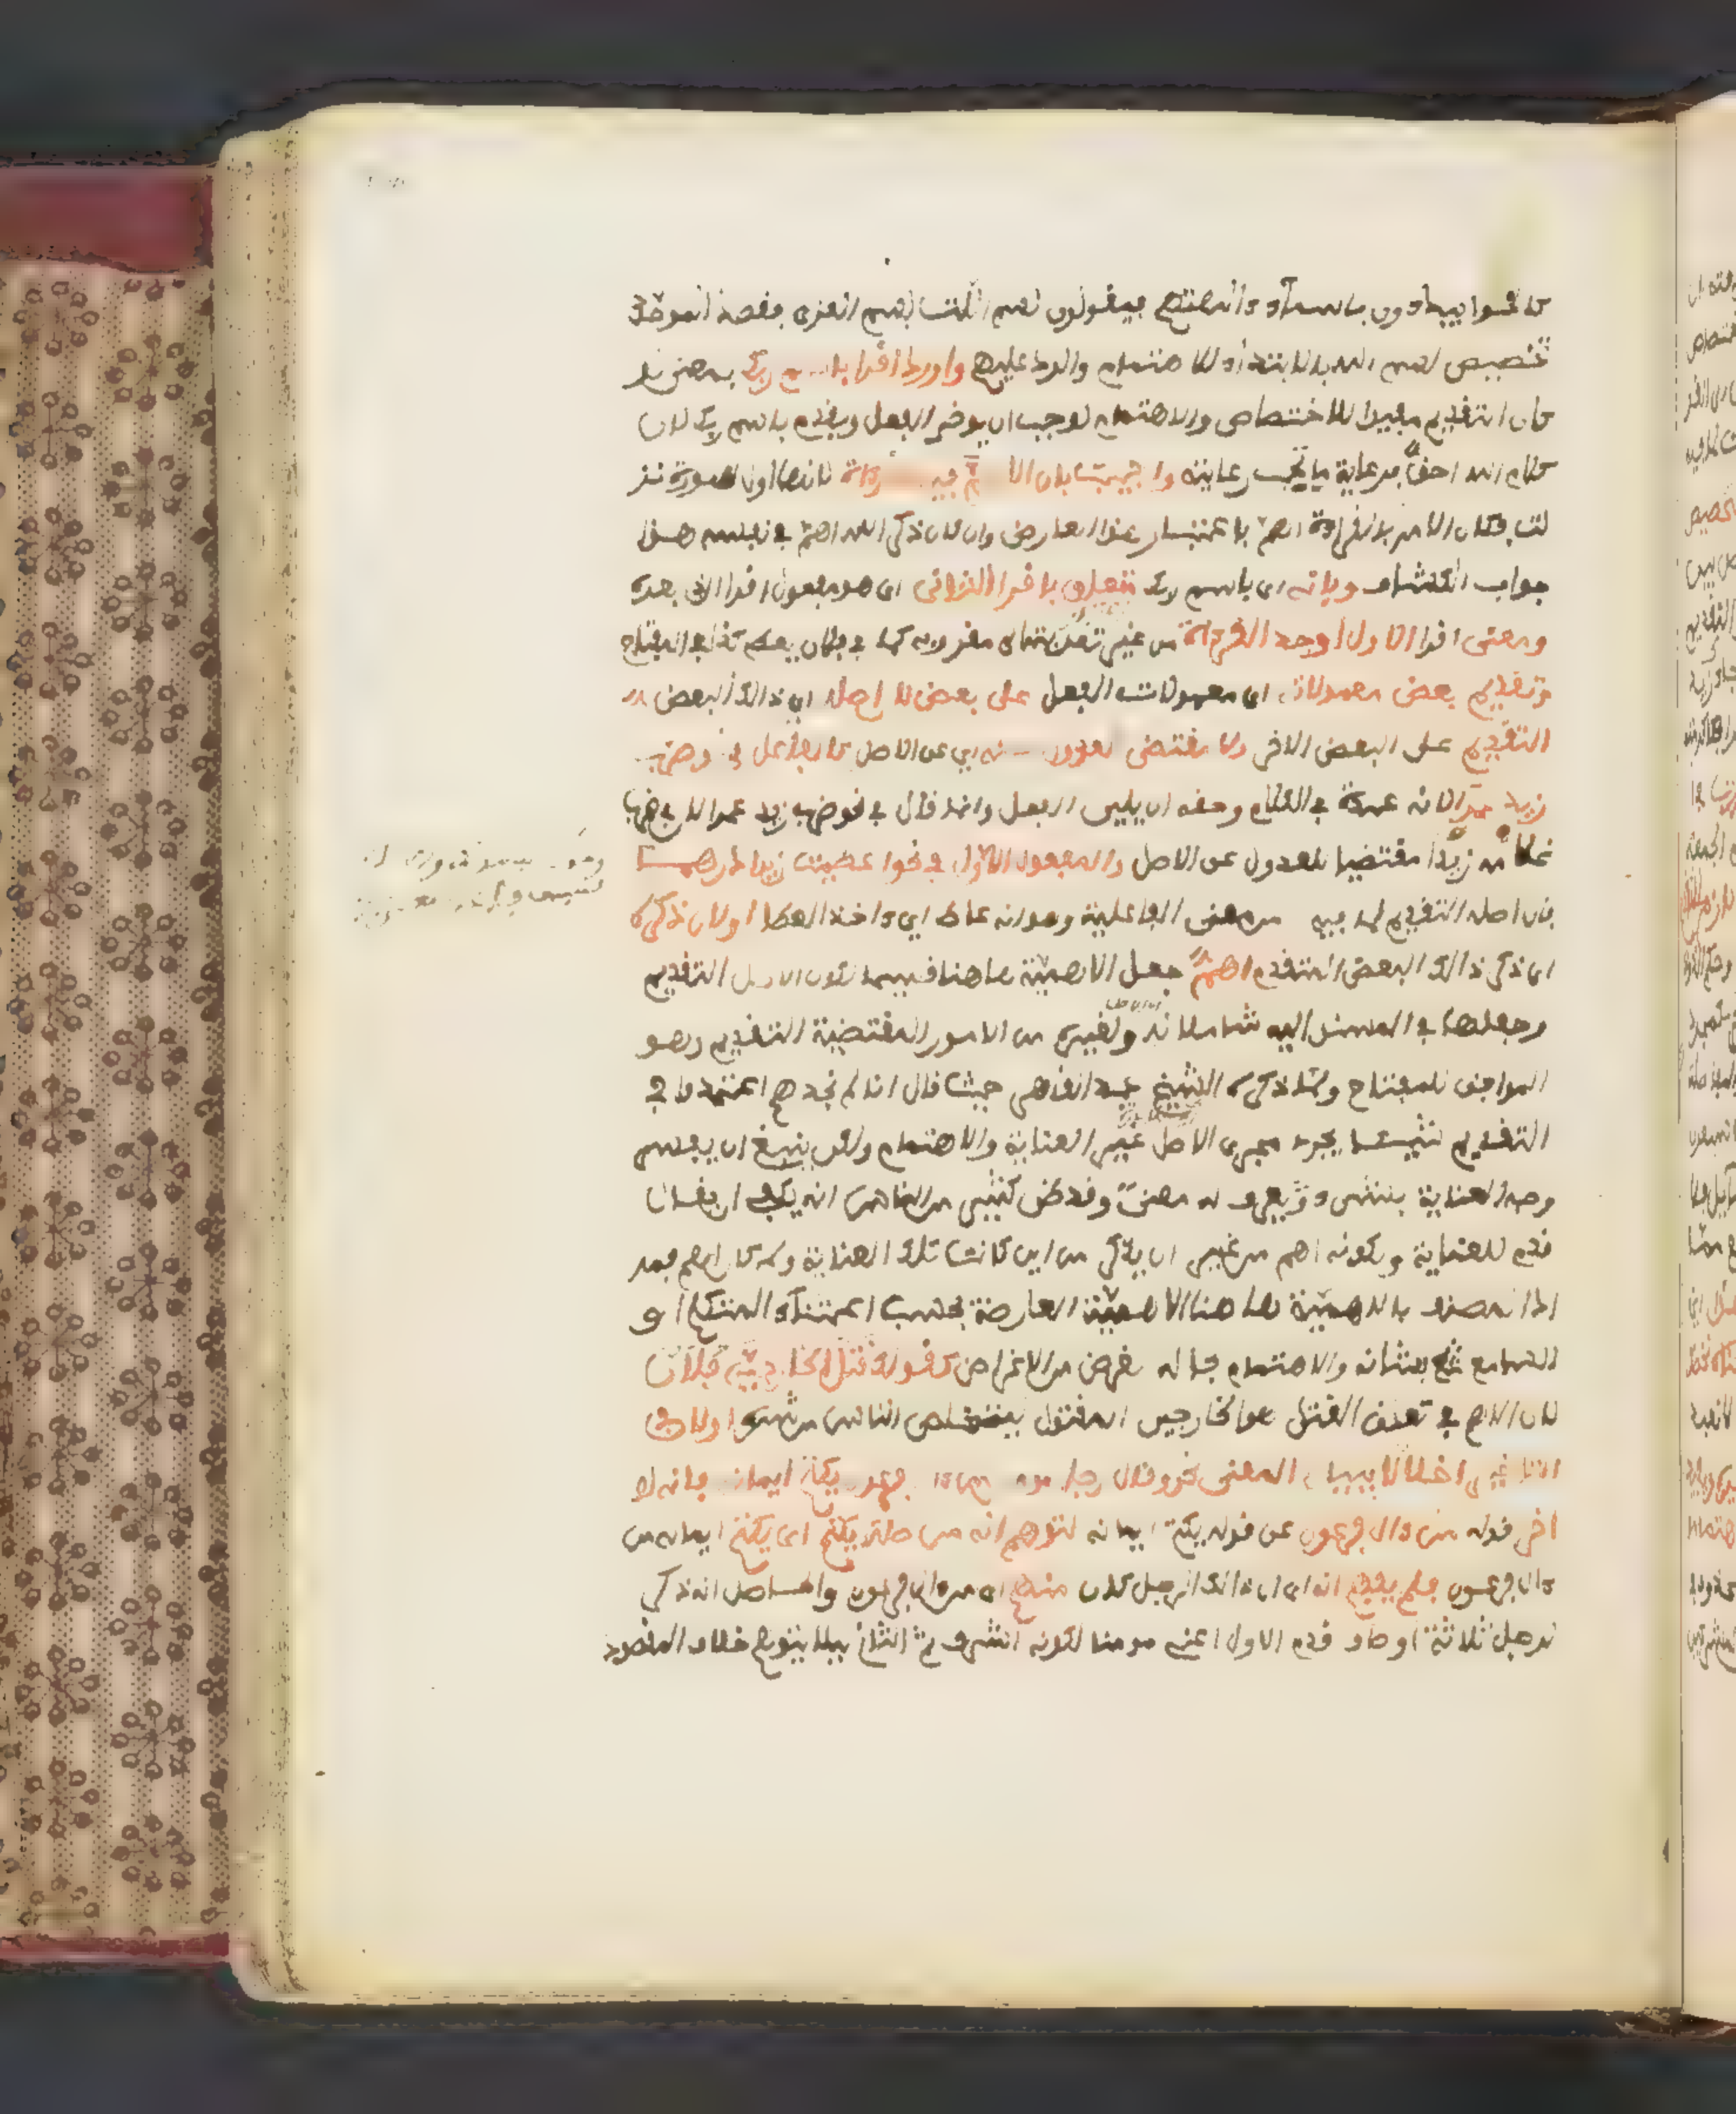 كانوا يبدءون باسماء ءالهتهم فيقولون بسم اللت بسم العزى فقصد الموحد
تخصيص اسم الله بالابتداء للاهتمام والرد عليهم واورد اقرا باسم ربك بمعنى لو
كان التقديم مفيدا للاختصاص والاهتمام لوجب ان يوخر الفعل ويقدم باسم ربك لان
كلام الله احق برعاية ما تجب رعايته واجيب بان الاهم فيه القراءة لانها اول سورة نز
لت فكان الامر بالقراءة اهم باعتبار هذا العارض وان كان ذكر الله اهم في نفسه هذا
جواب الكشاف وبانه اى باسم ربك متعلق باقرا الثانى اى هو مفعول اقرا الذى بعده
ومعنى اقرا الاول اوجد القراءة من غير تعديته الى مقروء به كما في فلان يعطى كذا في المفتاح
وتقديم بعض معمولاته اى معمولات الفعل على بعض لان اصله اى ذالك البعض
التقديم على البعض الاخر ولا مقتضى للعدول عنه اى عن الاصل كالفاعل في نحو ضرب
زيد عمرا لانه عمدة في الكلام وحقه ان يلى الفعل وانما قال في نحو ضرب زيد عمرا لان في ضرب
غلامه زيدا مقتضيا للعدول عن الاصل والمفعول الاول في نحو اعطيت زيدا درهما
فان اصله التقديم لما فيه من معنى الفاعلية وهو انه عاط اى ءاخذ العطا او لان ذكره
اى ذكر ذالك البعض المتقدم اهم جعل الاهمية هاهنا قسيما لكون الاصل التقديم
وجعلها في المسند اليه شاملا له ولغيره من الامور المقتضية التقديم وهو
الموافق للمفتاح ولما ذكره الشيخ عبد القاهر حيث قال انا لم نجدهم اعتمدوا في
التقديم شيئا يجرى مجرى الاصل غير العناية والاهتمام ولكن ينبغى ان يفسر
وجه العناية بشىء ويعرف له معنى وقد ظن كثير من الناس انه يكفى ان يقال
قدم للعناية ولكونه اهم من غير ان يذكر من اين كانت تلك العناية وبم كان اهم فمر
اد المصنف بالاهمية هاهنا الاهمية العارضة بحسب اعتناء المتكلم او
السامع بشانه والاهتمام بحاله لغرض من الاغراض كقولك قتل الخارجى فلان
لان الاهم في تعلق القتل هو الخارجى المقتول ليتخلص الناس من شره او لان في
التاخير اخلالا ببيان المعنى نحو وقال رجل مومن من ءال فرعون يكتم ايمانه فانه لو
اخر قوله من ءال فرعون عن قوله يكتم ايمانه لتوهم انه من صلة يكتم اى يكتم ايمانه من
ءال فرعون فلم يفهم انه اى ان ذالك الرجل كان منهم اى من ءال فرعون والحاصل انه ذكر
لرجل ثلاثة اوصاف قدم الاول اعنى مومنا لكونه اشرف ثم الثانى ليلا يتوهم خلاف المقصود